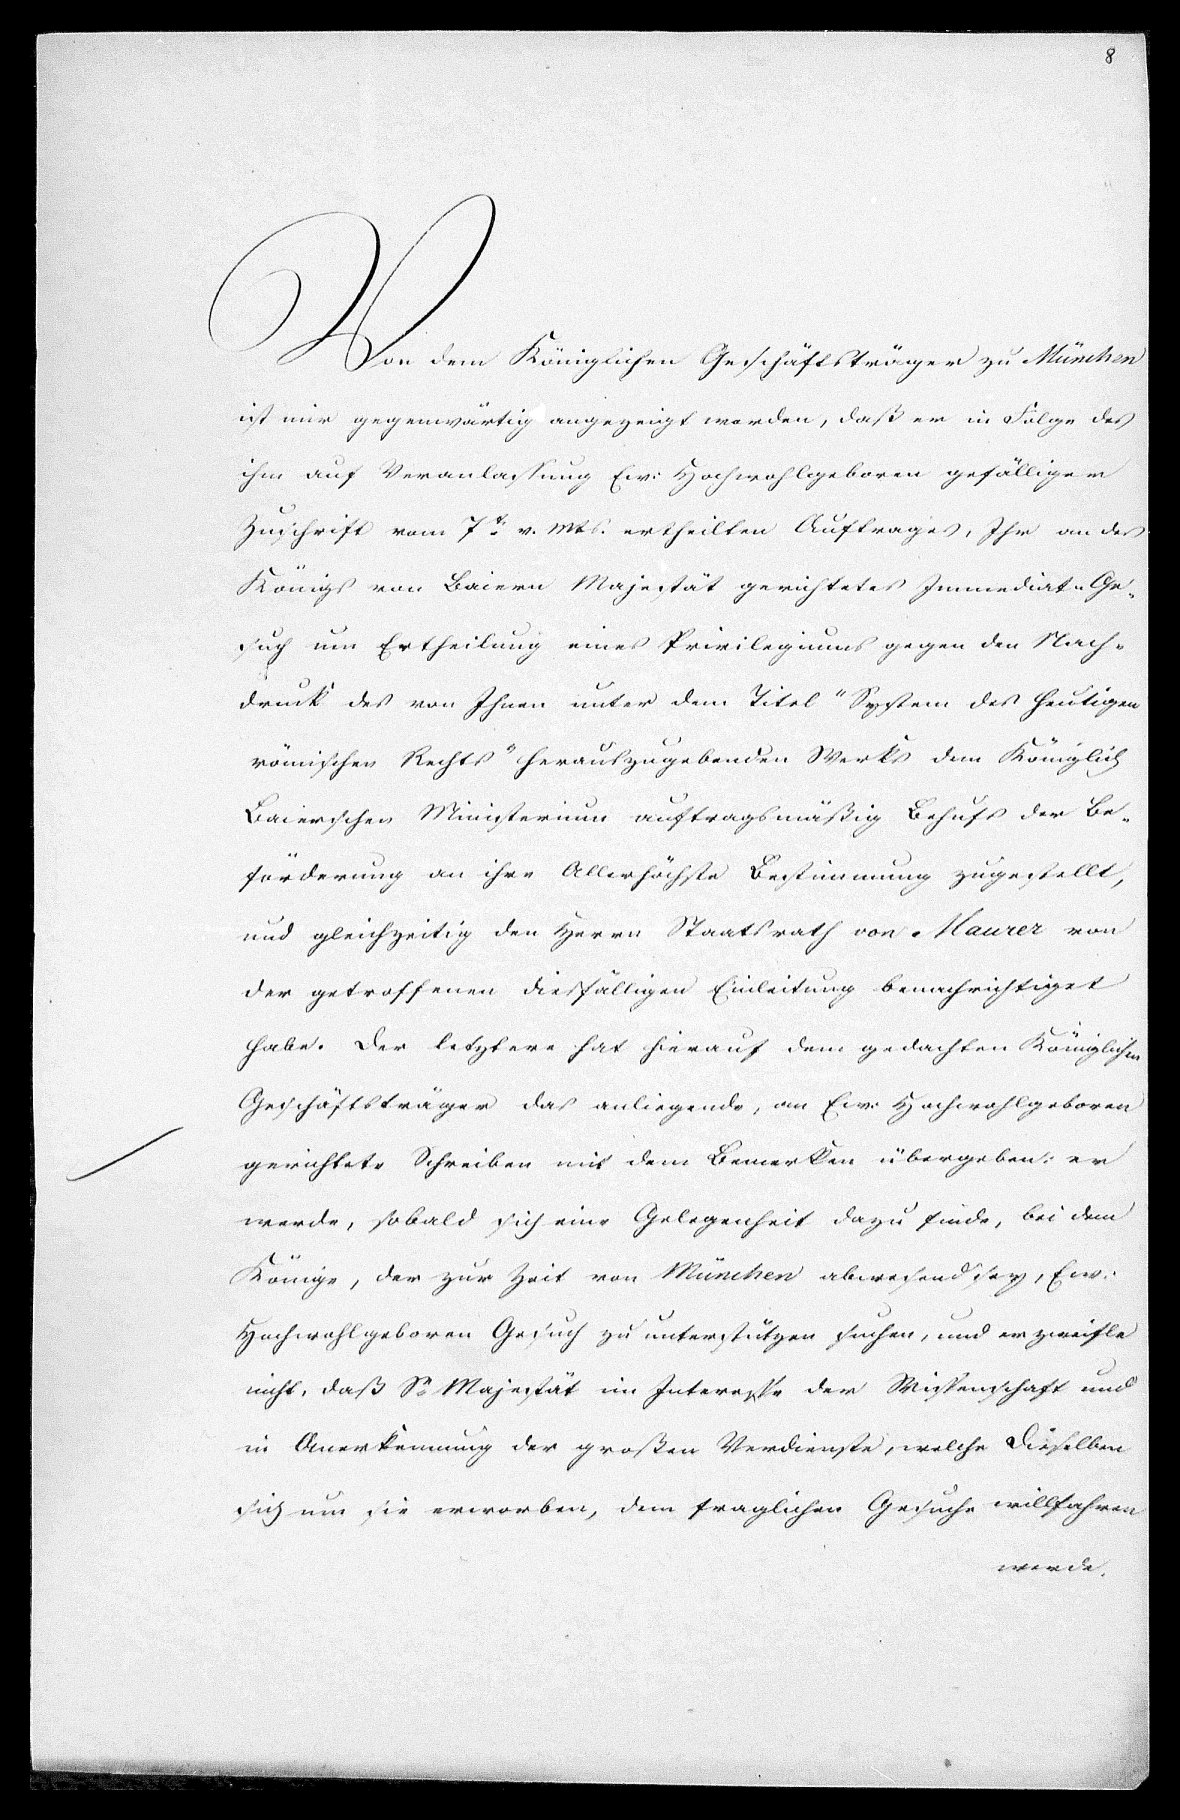 8
Von dem Königlichen Geschäftsträger zu München
ist mir gegenwärtig angezeigt worden, daß er in Folge des
ihm auf Veranlassung Ew: Hochwohlgeboren gefälligen
Zuschrift vom 7t. v. Mts. ertheilten Auftrages, Ihr an des
Königs von Baiern Majestät gerichtetes Immediat-Ge-
such um Ertheilung eines Privilegiums gegen den Nach-
druck des von Ihnen unter dem Titel "System des heutigen
römischen Rechts" herauszugebenden Werks dem Königlich
Baierschen Ministerium auftragsmäßig Behufs der Be-
förderung an ihre Allerhöchste Bestimmung zugestellt,
und gleichzeitig den Herrn Staatsrath von Maurer von
der getroffenen diesfälligen Einleitung benachrichtiget
habe. Der letztere hat hierauf dem gedachten Königlichen
Geschäftsträger das anliegende, an Ew: Hochwohlgeboren
gerichtete Schreiben mit dem Bemerken übergeben: er
werde, sobald sich eine Gelegenheit dazu finde, bei dem
Könige, der zur Zeit von München abwesend sey, Ew:
Hochwohlgeboren Gesuch zu unterstützen suchen, und er zweifle
nicht, daß Se Majestät im Interesse der Wissenschaft und
in Anerkennung der großen Verdienste, welche Dieselben
sich um sie erworben, dem fraglichen Gesuche willfahren
werde.